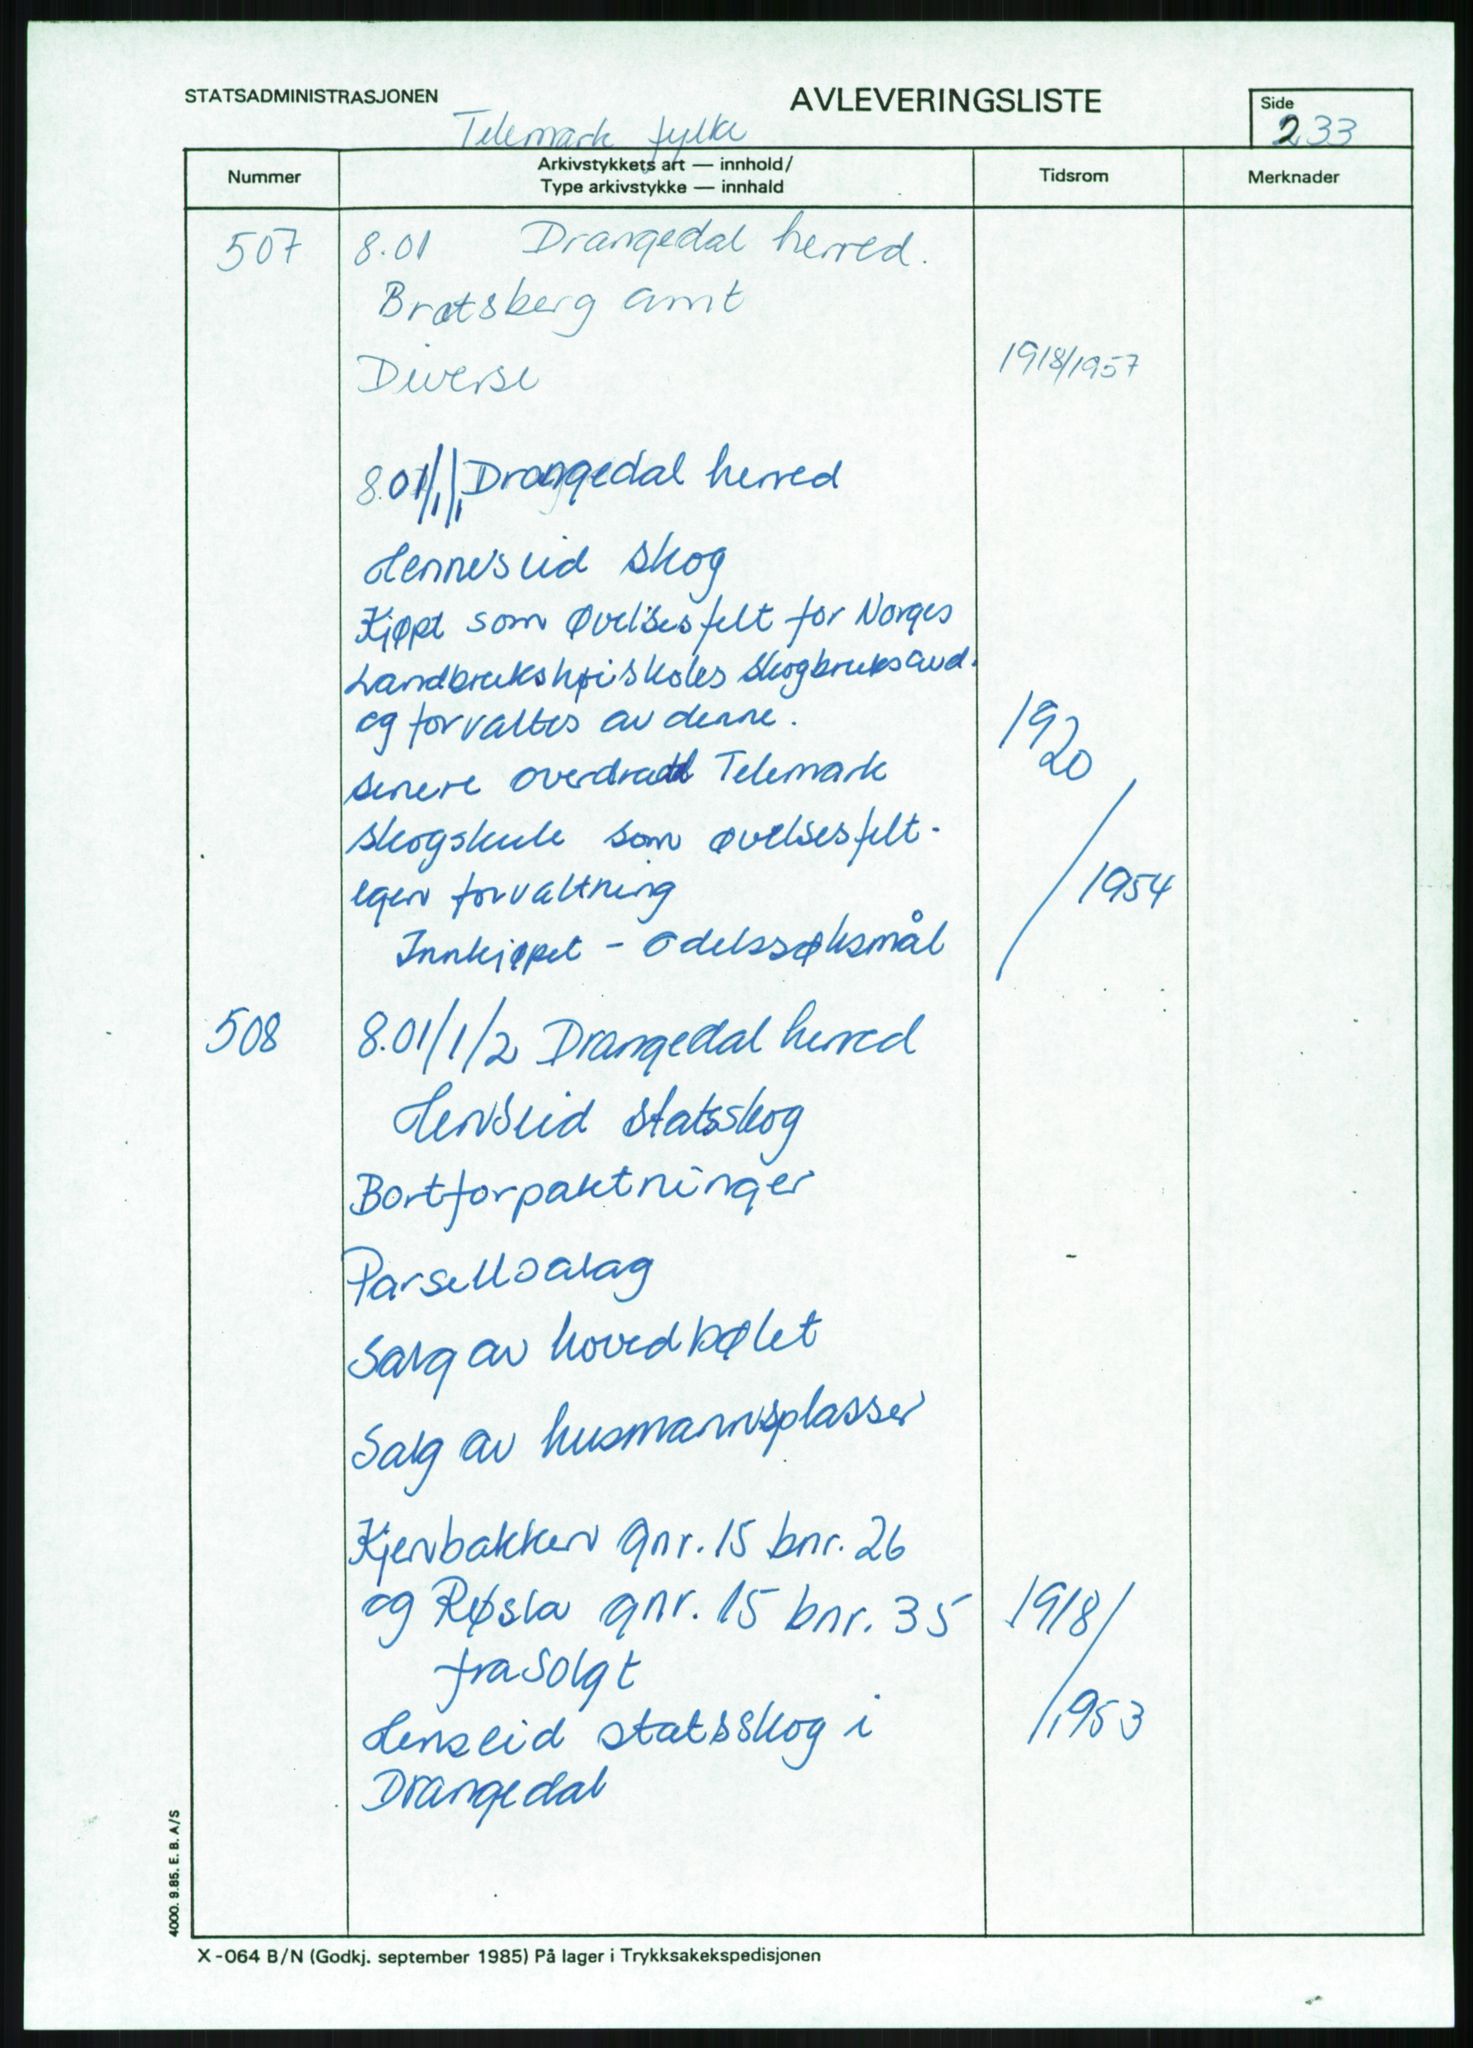 STATSADMINISTRASJONEN
AVLEVERINGSLISTE
Side
233
Telemark fylke
Nummer
Arkivstykkets art — innhold/
Type arkivstykke — innhald
Tidsrom
Merknader
507 8.01 Drangedal herred.
Bratsberg amt
Diverse 1918/1957
8.01/1/1 Drangedal herred
Henneseid skog
Kjøpt som øvelsesfelt for Norges
Landbrukshøiskoles skogbruksavd.
og forvaltes av denne. 1920
senere overdratt Telemark
skogskule som øvelsesfelt.
egen forvaltning /1954
Innkjøpet - odelssøksmål
508 8.01/1/2 Drangedal herred
Henseid statsskog
Bortforpaktninger
Parsellsalag
Salg av hovedbølet
Salg av husmannsplasser
Kjenbakken gnr. 15 bnr. 26
og Røsla gnr. 15 bnr. 35 1918/
frasolgt
Henseid statsskog i /1953
Drangedal
4000. 9.85. E. B. A/S
X-064 B/N (Godkj. september 1985) På lager i Trykksakekspedisjonen